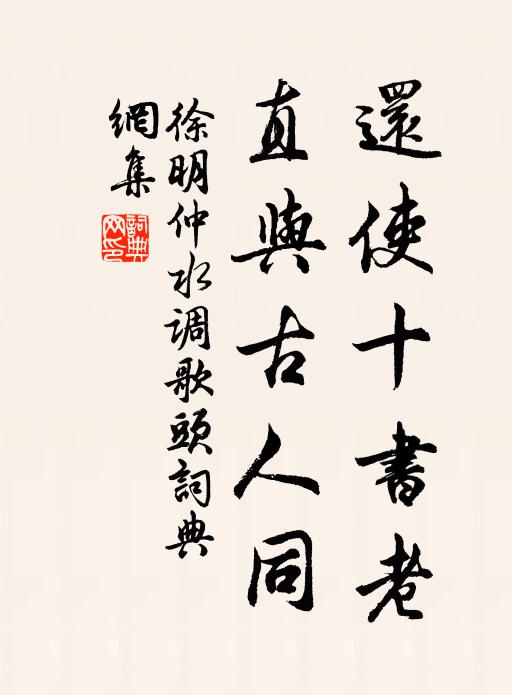 還使十書老
直與古人同
徐明仲水调歌頭詞典
網集
詞典
网印